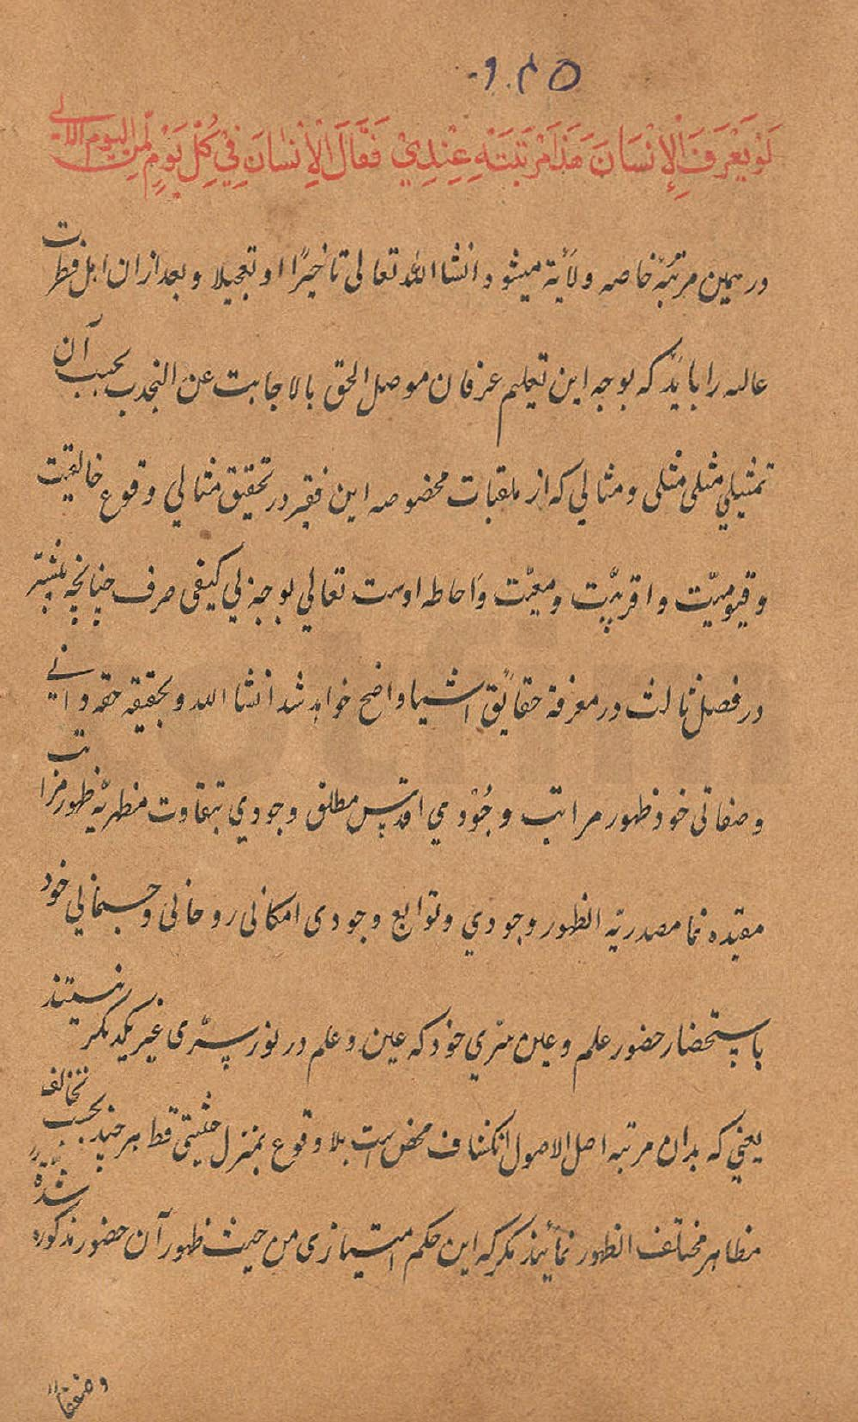 لَوْ يَعْرَفَ الْإِنْسَانَ هَذَا مَرْتَبَتَهِ عِنْدِيْ فَقَالَ الْاِنْسَانَ فِيْ كُلِّ يَوْمٍ لِّمَنِ الیوم
در همین مرتبۀ خاصه ولایة میشود انشا الله تعالی تاخیرًا او تعجیلا و بعد ازان اهل فطرت
عالیه را باید که بوجه این تعلیم عرفان موصل الحق بالاجابت عن بحسب آن
تمثیلي مثلی مثلی و مثالي که از ملقبات مخصوصه این فقیر در تحقیق مثالي وقوع خالقیت
و قیومیّت و اقربیّت و معیّت و احاطه اوست تعالي بوجه بی کیفی صرف چنانچه
در فصل ثالث در معرفة حقایق اشیا واضح خواهد شد انشا الله و بحقیقة حقه
و صفاتی خود ظهور مراتب وجودي اقدس مطلق وجودي بتفاوت مظهریّة ظهور مراتب
مقیده نما مصدریّه الظهور وجودي و توابع وجودی امکانی روحانی و جسمانی خود
باستحضار حضور علم و عین سّري خود که عین و علم در نور سّری غیر یکدیگر نیستند
یعني که بدان مرتبه اصل الاصول انکشاف محض است بلا وقوع بمنزل حیثیتی قط هر چند بحسب تخالف
مظاهر مختلف الظهور نمایند مگر که این حکم امتیازی من حیث ظهور آن حضور مذکوره شده